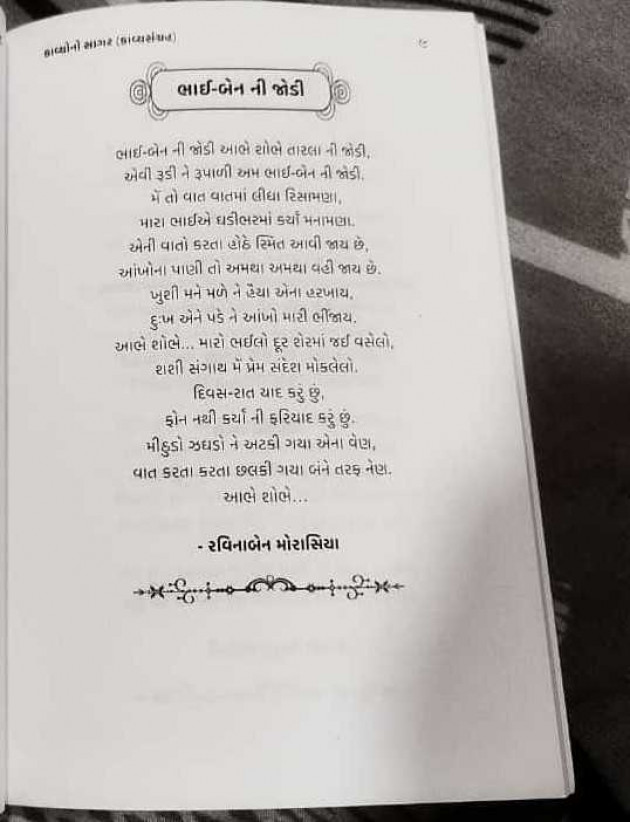 કાવ્યોનો સાગર (કાવ્યસંગ્રહ)
૯
ભાઈ-બેન ની જોડી
ભાઈ-બેન ની જોડી આભે શોભે તારલા ની જોડી,
એવી રૂડી ને રૂપાળી અમ ભાઈ-બેન ની જોડી.
મેં તો વાત વાતમાં લીધા રિસામણા,
મારા ભાઈએ ઘડીભરમાં કર્યાં મનામણા.
એની વાતો કરતા હોઠે સ્મિત આવી જાય છે,
આંખોના પાણી તો અમથા અમથા વહી જાય છે.
ખુશી મને મળે ને હૈયા એના હરખાય,
દુઃખ એને પડે ને આંખો મારી ભીંજાય.
આભે શોભે... મારો ભઈલો દૂર શેરમાં જઈ વસેલો,
શશી સંગાથ મેં પ્રેમ સંદેશ મોકલેલો.
દિવસ-રાત યાદ કરું છું,
ફોન નથી કર્યાં ની ફરિયાદ કરું છું.
મીઠુડો ઝઘડો ને અટકી ગયા એના વેણ,
વાત કરતા કરતા છલકી ગયા બંને તરફ નેણ.
આભે શોભે...
- રવિનાબેન મોરાસિયા